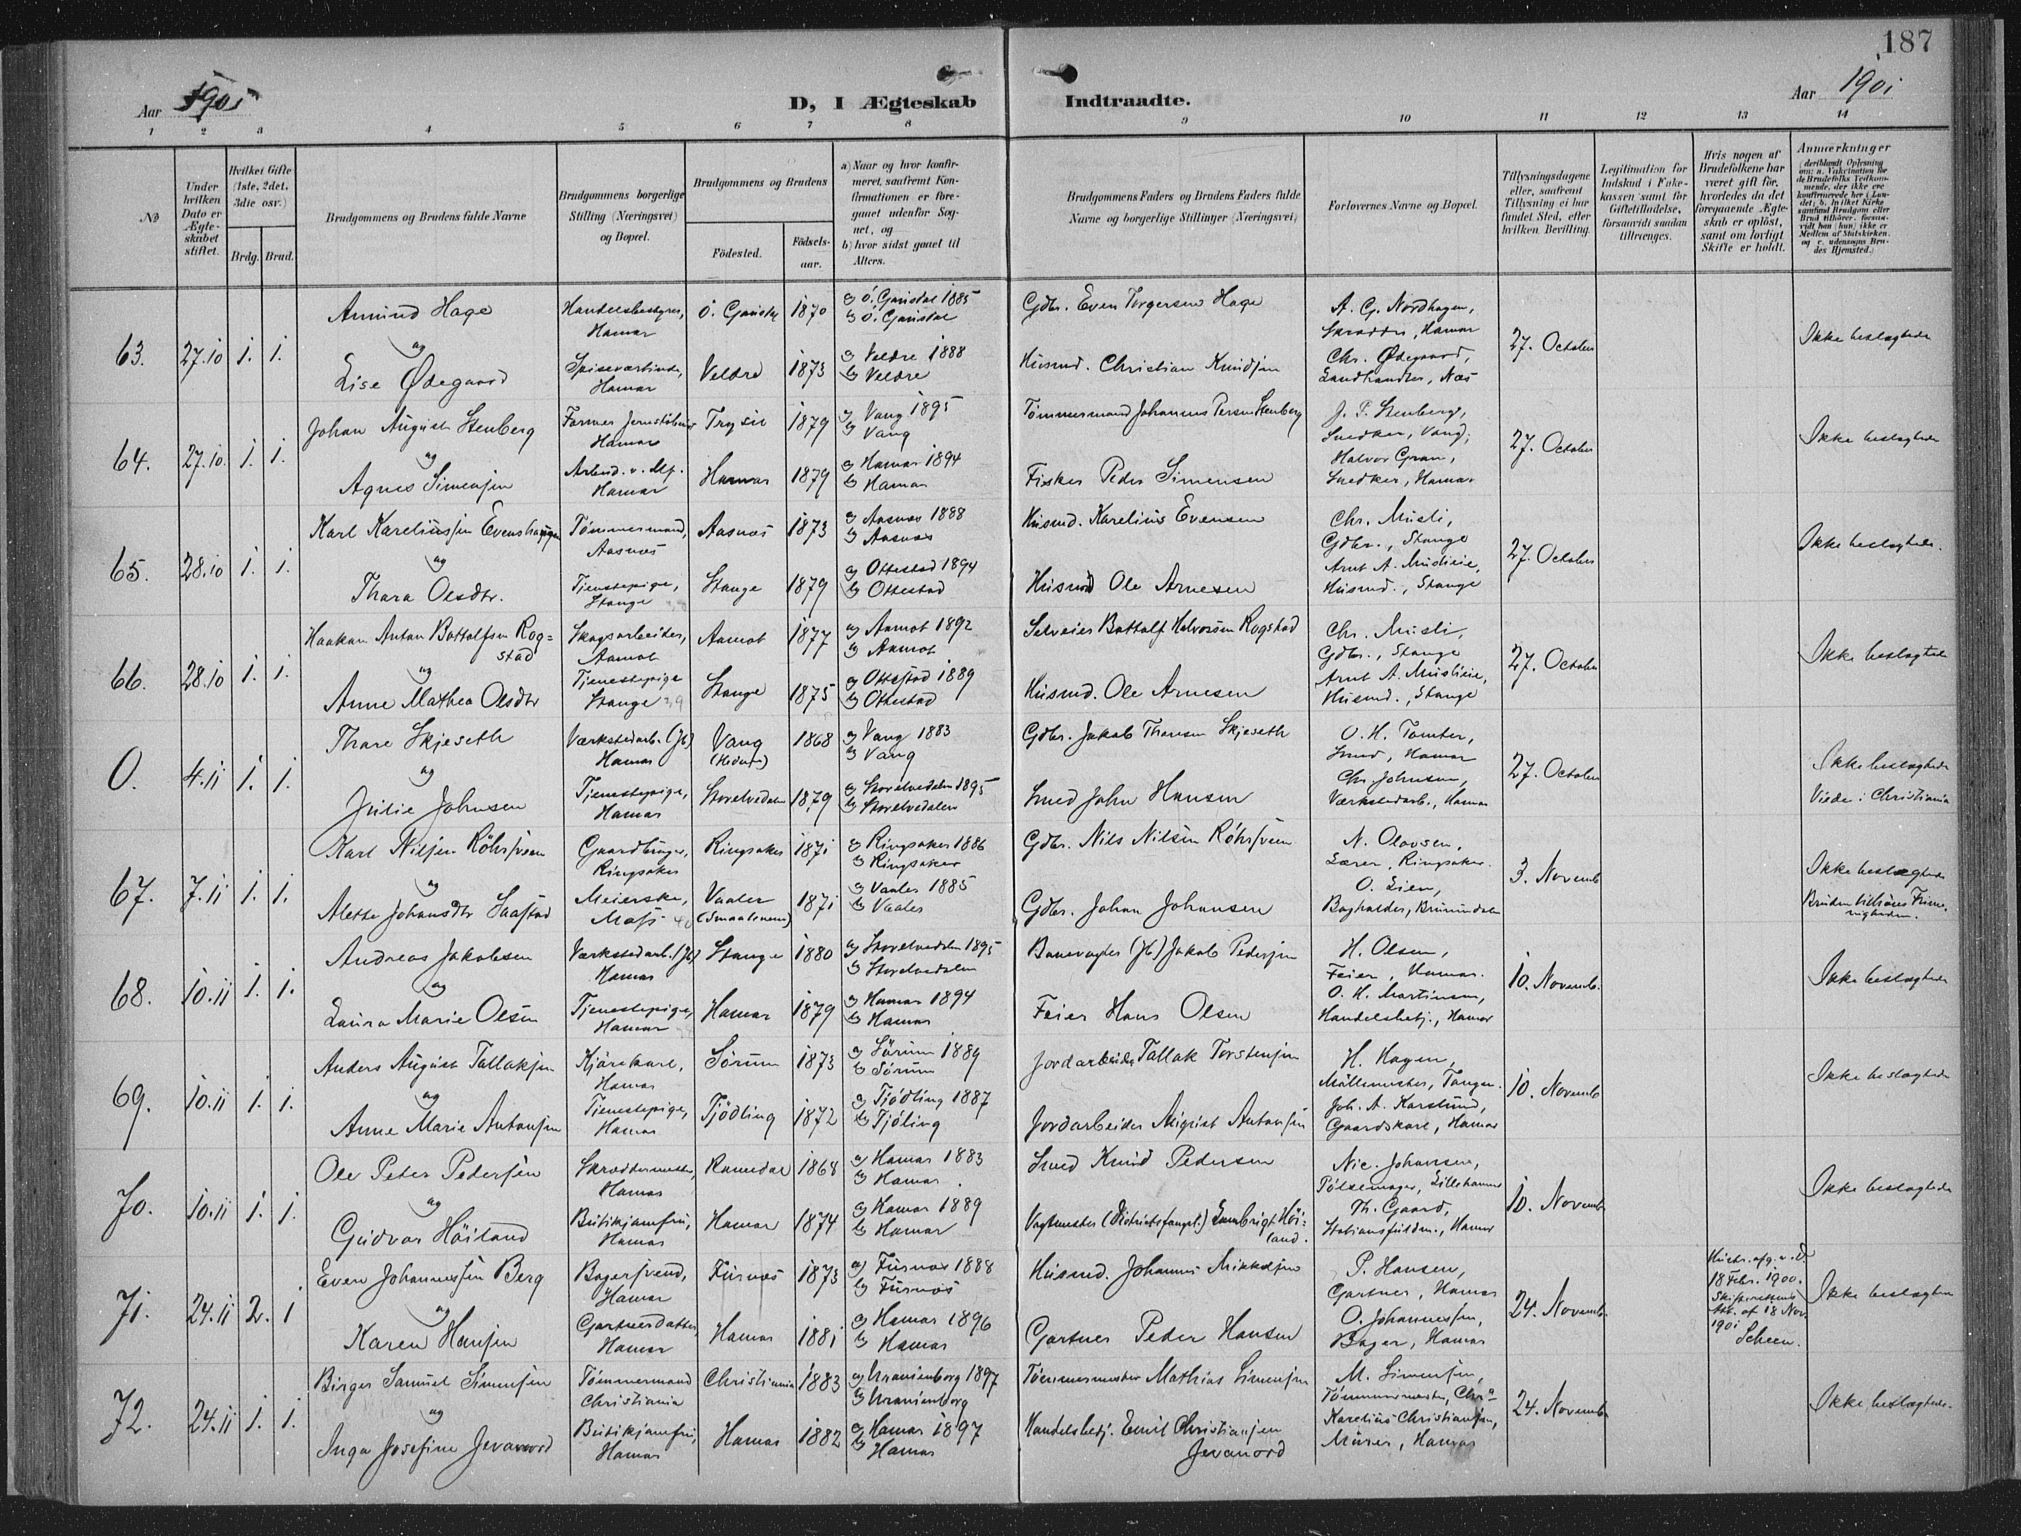 187
Aar 1901
D, I Ægteskab Indtraadte.
Aar 1901
1 2 3 4 5 6 7 8 9 10 11 12 13 14
№
Under hvilken Dato er Ægteskabet stiftet.
Hvilket Gifte (1ste, 2det, 3die osv.)
Brdg. Brud.
Brudgommens og Brudens fulde Navne
Brudgommens borgerlige Stilling (Næringsvei) og Bopæl.
Brudgommens og Brudens
Fødested.
Fødselsaar.
a) Naar og hvor konfirmeret, saafremt Konfirmationen er foregaaet udenfor Sognet, og
b) hvor sidst gaaet til Alters.
Brudgommens Faders og Brudens Faders fulde Navne og borgerlige Stillinger (Næringsvei)
Forlovernes Navne og Bopæl.
Tillysningsdagene eller, saafremt Tillysning ei har fundet Sted, efter hvilken Bevilling.
Legitimation for Indskud i Enkekassen samt for Giftetilladelse, forsaavidt saadan tiltrænges.
Hvis nogen af Brudefolkene har været gift før, hvorledes da det foregaaende Ægteskab er opløst, samt om lovligt Skifte er holdt.
Anmærkninger
63. 27.10 1. 1.
Amund Hage
og
Lise Ødegaard
Handelsbestyrer, Hamar
Spiseværtinde, Hamar
Ö. Gausdal 1870
Veldre 1873
a) Ö. Gausdal 1885
b) Ö. Gausdal
a) Veldre 1888
b) Veldre
Gdbr. Even Torgersen Hage
Husmd. Christian Knudsen
A. G. Nordhagen,
Skrædder, Hamar
Chr. Ødegaard,
Landhandler, Næs
27. October
Ikke beslægtede
64. 27.10. 1. 1.
Johan August Stenberg
og
Agnes Simensen
Hamar
Hamar
Trysil 1879
Hamar 1879
a) Vang 1895
b) Vang
a) Hamar 1894
b) Hamar
Tømmermand Johannes Persen Stenberg
Fisker Peder Simensen
J. P. Stenberg,
Snedker, Vang;
Halvor Gran,
Snedker, Hamar
27. October
Ikke beslægtede
65. 28.10 1. 1.
Karl Kareliussen Evenshaugen
og
Thora Olsdtr.
Tømmermand, Aasnæs
Tjenestepige, Stange
Aasnæs 1873
Stange 1879
a) Aasnæs 1888
b) Aasnæs
a) Ottestad 1894
b) Ottestad
Husmd. Karelius Evensen
Husmd Ole Arnesen
Chr. Musli,
Gdbr., Stange
Arnt A. Muslieie,
Husmd., Stange
27. October
Ikke beslægtede.
66. 28.10 1. 1.
Haakon Anton Bottolfsen Rog=
stad
og
Anne Mathea Olsdtr
Skogsarbeider, Aamot
Tjenestepige Stange
Aamot 1877
Stange 1875
a) Aamot 1892
b) Aamot
a) Ottestad 1889
b) Ottestad
Selveier Bottolf Halvorsen Rogstad
Husmd. Ole Arnesen
Chr. Musli,
Gdbr., Stange
Arnt A. Muslieie,
Husmd., Stange
27. October
Ikke beslægtede
0. 4.11 1. 1.
Thore Skjeseth
og
Julie Johnsen
Værkstedarb. (Jb) Hamar
Tjenestepige, Hamar
Vang (Hedm.) 1868
Storelvedalen 1879
a) Vang 1883
b) Vang
a) Storelvedalen 1895
b) Storelvedalen
Gdbr. Jakob Thoresen Skjeseth
Smed John Hansen
O. H. Tomter,
Smed, Hamar
Chr. Johnsen,
Værkstedarb., Hamar
27. October
Ikke beslægtede
Viede i Christiania
67. 7.11 1. 1.
Karl Nilsen Röhrsveen
og
Alette Johansdtr Saastad
Gaardbruger, Ringsaker
Meierske, Moss
Ringsaker 1871
Vaaler (Smaalenene) 1871
a) Ringsaker 1886
b) Ringsaker
a) Vaaler 1885
b) Vaaler
Gdbr. Nils Nilsen Röhrsveen
Gdbr. Johan Johansen
N. Olovsen,
Lærer, Ringsaker.
O. Lien,
Bogholder, Brumundalen
3. Novemb.
Ikke beslægtede
Bruden tilhører Frimenigheden.
68. 10.11 1. 1.
Andreas Jakobsen
og
Laura Marie Olsen
Værkstedarb. (Jb) Hamar
Tjenestepige, Hamar
Stange 1880
Hamar 1879
a) Storelvedalen 1895
b) Storelvedalen
a) Hamar 1894
b) Hamar
Banevogter (Jb) Jakob Pedersen
Feier Hans Olsen
H. Olsen,
Feier, Hamar.
O. H. Martinsen,
Handelsbetj., Hamar
10. Novemb.
Ikke beslægtede
69. 10.11 1. 1.
Anders August Tallaksen
og
Anne Marie Antonsen
Kjørekarl, Hamar
Tjenestepige, Hamar
Sørum 1873
Tjödling 1872
a) Sörum 1889
b) Sörum
a) Tjödling 1887
b) Tjöling
Jordarbeider Tallak Torstensen
Jordarbeider August Antonsen
H. Hagen,
Möllemester, Tangen
Joh. A. Karslund,
Gaardskarl, Hamar
10. Novemb
Ikke beslægtede
70. 10.11 1. 1.
Ole Peter Pedersen
og
Gudvor Höiland
Skræddermester, Hamar
Butikjomfru, Hamar
Romedal 1868
Hamar 1874
a) Hamar 1883
b) Hamar
a) Hamar 1889
b) Hamar
Smed Knud Pedersen
Vagtmester (Distriktsfængsl.) Höiland.
Nic. Johansen,
Pölsemager, Lillehammer
Th. Gaard,
Stationsfuldm., Hamar
10. Novemb
Ikke beslægtede
71. 24.11 2. 1
Even Johannessen Berg
og
Karen Hansen
Bagersvend, Hamar
Gartnerdatter, Hamar
Furnæs 1873
Hamar 1881
a) Furnæs 1888
b) Furnæs
a) Hamar 1896
b) Hamar
Husmd. Johannes Mikkelsen
Gartner Peder Hansen
P. Hansen,
Gartner, Hamar
O. Johannessen,
Bager, Hamar
24. Novemb.
Hustr. afg. v. D.
18 Febr. 1900.
Skifterettens
Att. af 18 Nov.
1901
Scheen.
Ikke beslægtede
72. 24.11 1. 1.
Birger Samuel Simensen
og
Inga Josefine Jevanord
Tømmermand Christiania
Butikjomfru, Hamar
Christiania 1883
Hamar 1882
a) Uranienborg 1897
b) Uranienborg
a) Hamar 1897
b) Hamar
Tömmermester Mathias Simensen
Handelsbetj. Emil Christiansen
Jevanord
M. Simensen,
Tömmermester, Chra
Karelius Christiansen,
Murer, Hamar
24. Novemb.
Ikke beslægtede.